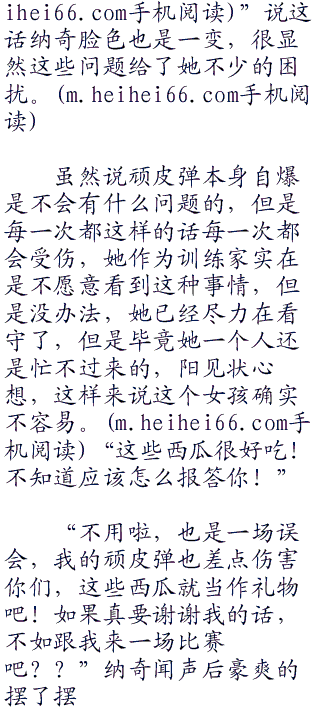 ihei66.com手机阅读)”说这
话纳奇脸色也是一变，很显
然这些问题给了她不少的困
扰。(m.heihei66.com手机阅
读)
虽然说顽皮弹本身自爆
是不会有什么问题的，但是
每一次都这样的话每一次都
会受伤，她作为训练家实在
是不愿意看到这种事情，但
是没办法，她已经尽力在看
守了，但是毕竟她一个人还
是忙不过来的，阳见状心
想，这样来说这个女孩确实
不容易。(m.heihei66.com手
机阅读)“这些西瓜很好吃！
不知道应该怎么报答你！”
“不用啦，也是一场误
会，我的顽皮弹也差点伤害
你们，这些西瓜就当作礼物
吧！如果真要谢谢我的话，
不如跟我来一场比赛
吧？？”纳奇闻声后豪爽的
摆了摆